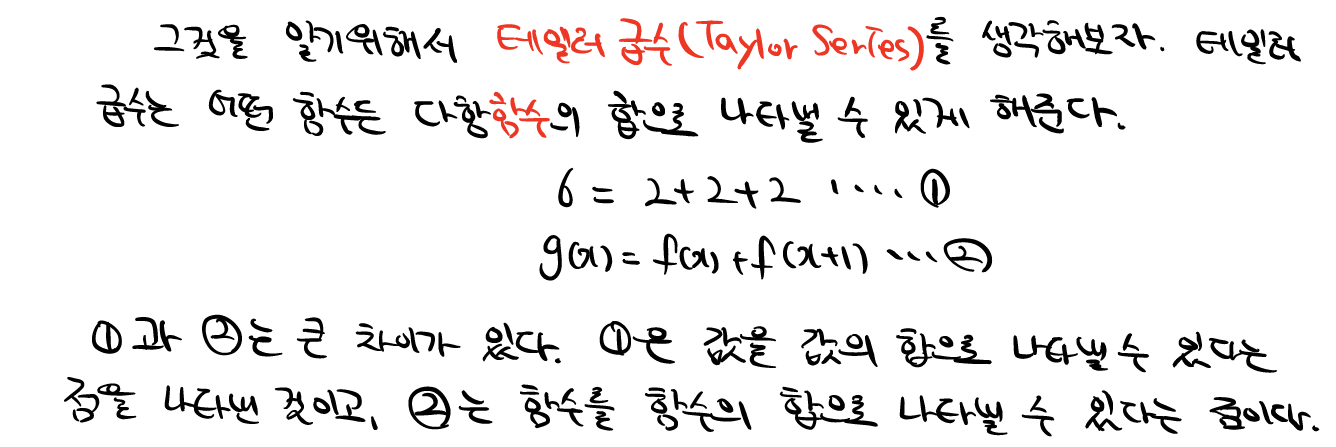 그것을 알기위해서 테일러 급수(Taylor Series)를 생각해보자. 테일러
급수는 어떤 함수든 다항함수의 합으로 나타낼 수 있게 해준다.
6 = 2+2+2 ···· ①
g(x) = f(x) + f(x+1) ··· ②
①과 ②는 큰 차이가 있다. ①은 값을 값의 합으로 나타낼 수 있다는
점을 나타낸 것이고, ②는 함수를 함수의 합으로 나타낼 수 있다는 점이다.